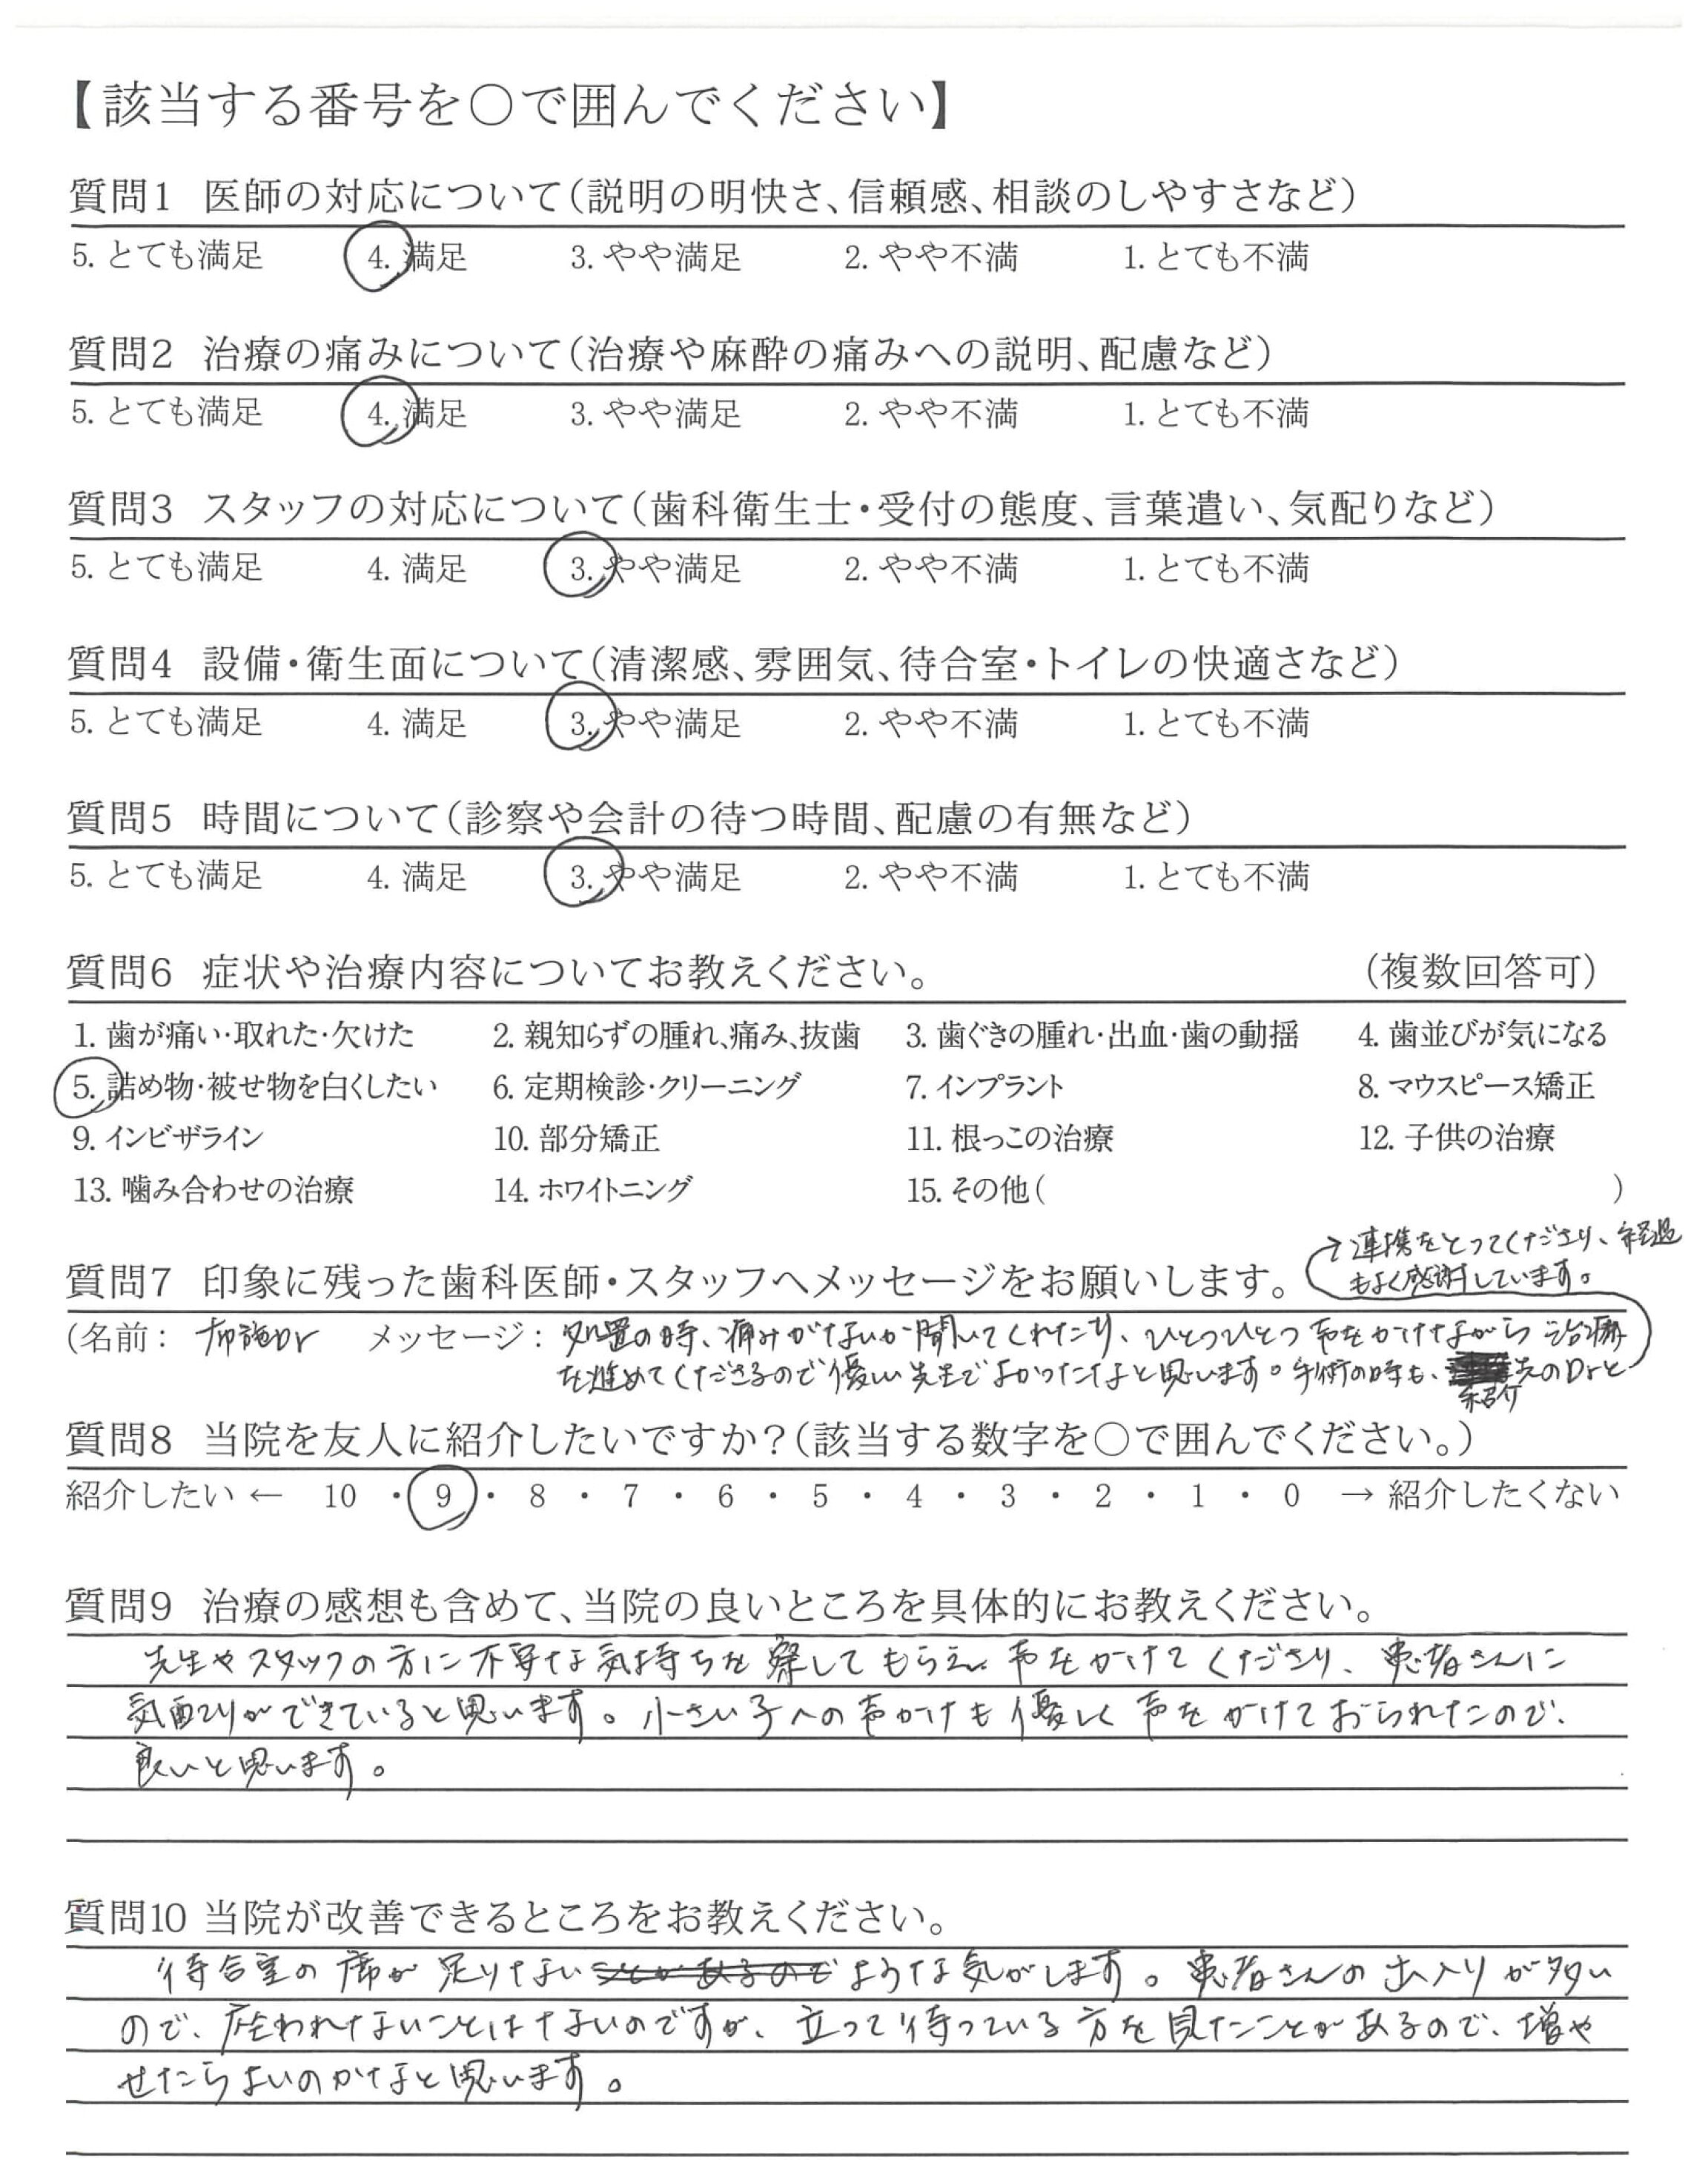 【該当する番号を○で囲んでください】
質問1 医師の対応について（説明の明快さ、信頼感、相談のしやすさなど）
5. とても満足 4. 満足 3. やや満足 2. やや不満 1. とても不満
質問2 治療の痛みについて（治療や麻酔の痛みへの説明、配慮など）
5. とても満足 4. 満足 3. やや満足 2. やや不満 1. とても不満
質問3 スタッフの対応について（歯科衛生士・受付の態度、言葉遣い、気配りなど）
5. とても満足 4. 満足 3. やや満足 2. やや不満 1. とても不満
質問4 設備・衛生面について（清潔感、雰囲気、待合室・トイレの快適さなど）
5. とても満足 4. 満足 3. やや満足 2. やや不満 1. とても不満
質問5 時間について（診察や会計の待つ時間、配慮の有無など）
5. とても満足 4. 満足 3. やや満足 2. やや不満 1. とても不満
質問6 症状や治療内容についてお教えください。 （複数回答可）
1. 歯が痛い・取れた・欠けた 2. 親知らずの腫れ、痛み、抜歯 3. 歯ぐきの腫れ・出血・歯の動揺 4. 歯並びが気になる
5. 詰め物・被せ物を白くしたい 6. 定期検診・クリーニング 7. インプラント 8. マウスピース矯正
9. インビザライン 10. 部分矯正 11. 根っこの治療 12. 子供の治療
13. 噛み合わせの治療 14. ホワイトニング 15. その他（ ）
質問7 印象に残った歯科医師・スタッフへメッセージをお願いします。
（名前： 布施Dr メッセージ： 処置の時、痛みがないか聞いてくれたり、ひとつひとつ声をかけながら治療
を進めてくださるので優しい先生でよかったなと思います。手術の時も、紹介先のDrと
→連携をとってくださり、経過
もよく感謝しています。
質問8 当院を友人に紹介したいですか？（該当する数字を○で囲んでください。）
紹介したい ← 10 ・ 9 ・ 8 ・ 7 ・ 6 ・ 5 ・ 4 ・ 3 ・ 2 ・ 1 ・ 0 → 紹介したくない
質問9 治療の感想も含めて、当院の良いところを具体的にお教えください。
先生やスタッフの方に不安な気持ちを察してもらえ、声をかけてくださり、患者さんに
気配りができていると思います。小さい子への声かけも優しく声をかけておられたので、
良いと思います。
質問10 当院が改善できるところをお教えください。
待合室の席が足りないことがあるのでような気がします。患者さんの出入りが多い
ので、座われないことはないのですが、立って待っている方を見たことがあるので、増や
せたらよいのかなと思います。